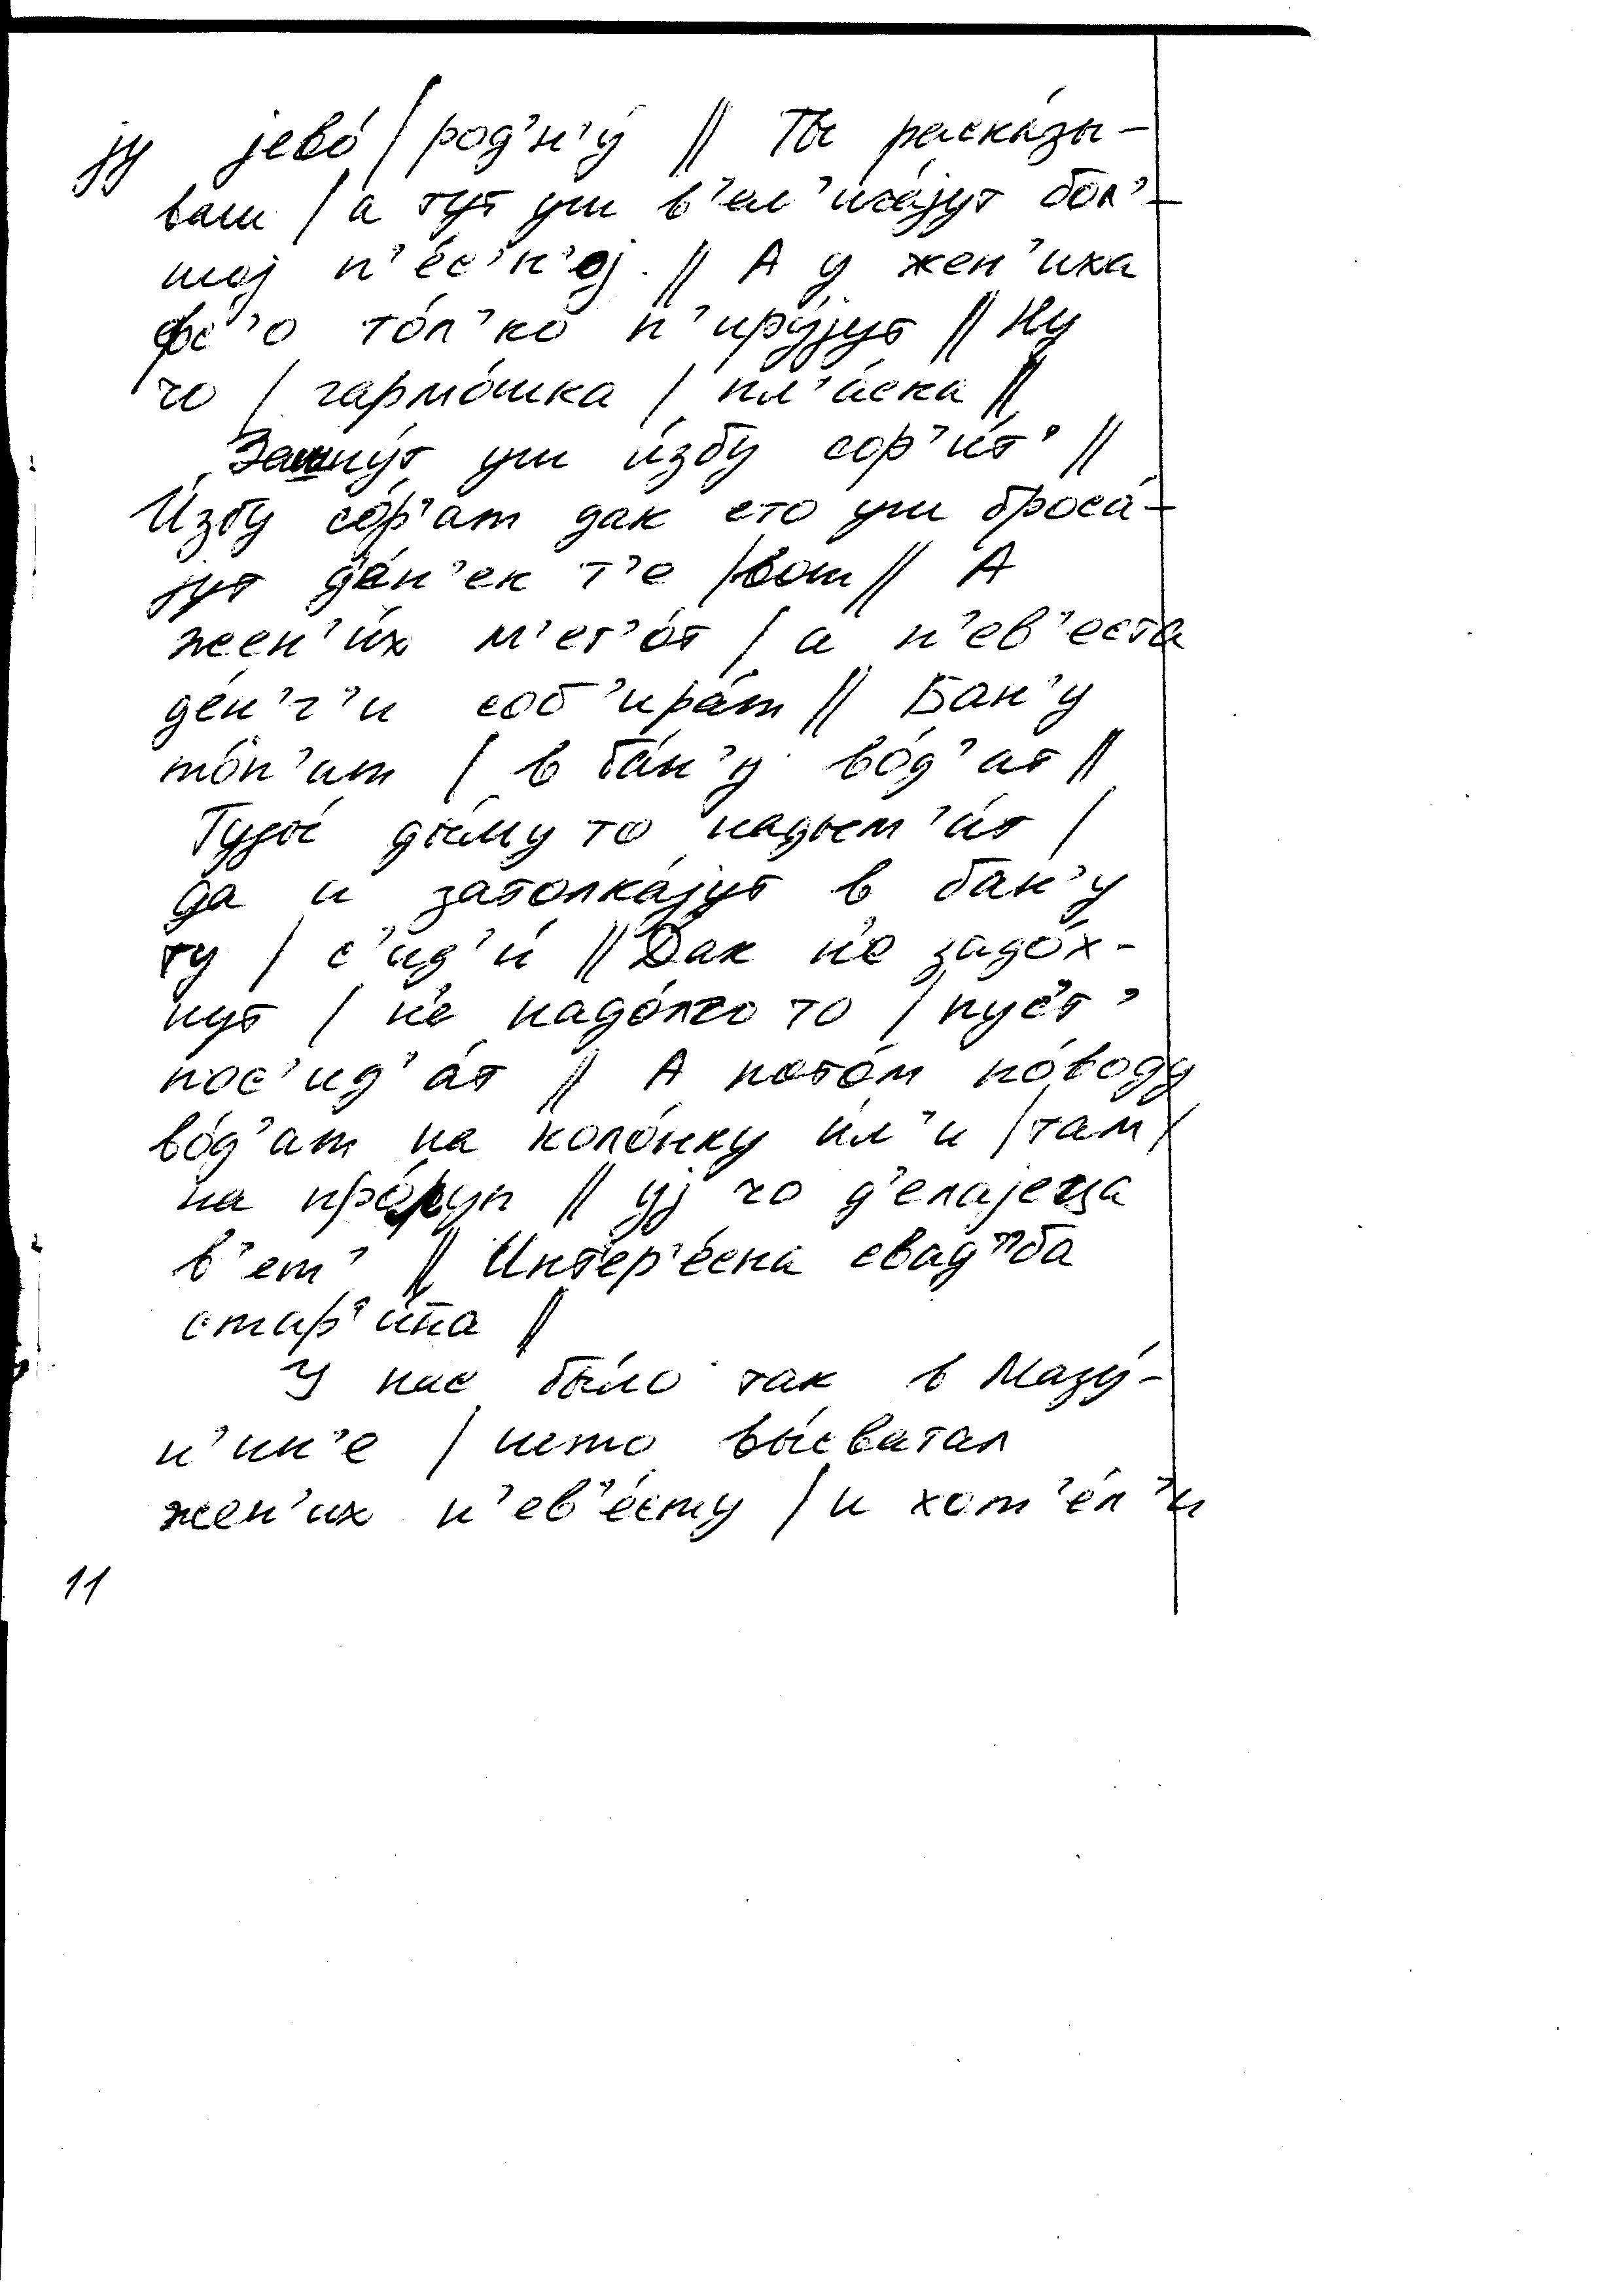 jу jевó / род’н’ý // Ты раскáзы-
ваш / а тут уш в’ел’ичájут бол’-
шоj п’éс’н’оj // А у жен’иха
фс’о тóл’ко п’ирýjут // Ну
чо / гармóшка / пл’áска //
Зачнýт уш úзбу сор’úт’ //
Úзбу сóр’ат дак ето уш бросá-
jут дéн’ек т’е / вот // А
жен’úх м’ет’óт / а н’ев’еста
дéн’г’и соб’ирáт // Бан’у
тóп’ат / в бáн’у вóд’ат //
Туды́ ды́му то надым’úт /
да и затолкájут в бан’у
ту / с’ид’ú // Дак н’е задóх-
нут / н’е надóлго то / пус’т’
пос’ид’áт // А потóм пó воду
вóд’ат на колóнку úл’и / там /
на прóруп // уj чо д’елаjеца
в’ет’ // Интер’éсна свад’’ба
стар’úнна //
У нас бы́ло так в Мазý-
н’ин’е / што вы́сватал
жен’их н’ев’éсту / и хот’éл’и
11